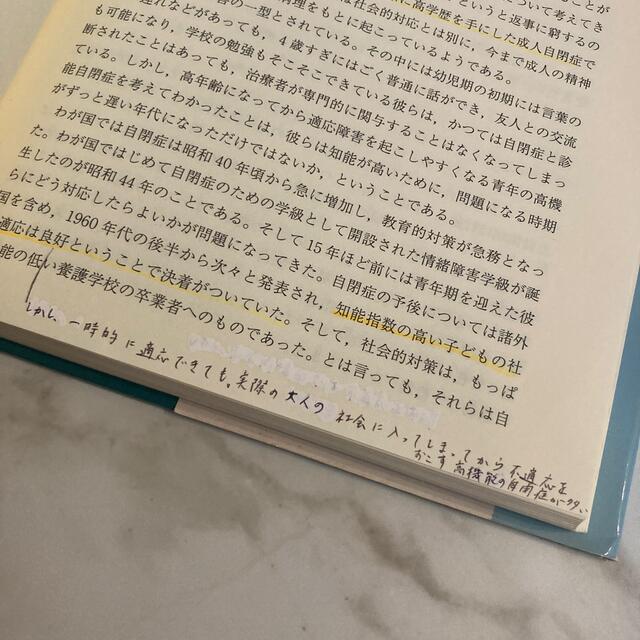 について考えてき
という返事に窮するの
に高学歴を手にした成人自閉症で
は社会的対応とは別に，今まで成人の精神
病理をもとに起こっているようである。
害の一型とされている。その中には幼児期の初期には言葉の
遅れなどがあっても，4歳すぎにはごく普通に話ができ，友人との交流
も可能になり，学校の勉強もそこそこできている彼らは，かつては自閉症と診
断されたことはあっても，治療者が専門的に関与することはなくなってしまっ
ている。しかし，高年齢になってから適応障害を起こしやすくなる青年の高機
能自閉症を考えてわかったことは，彼らは知能が高いために，問題になる時期
がずっと遅い年代になっただけではないか，ということである。
わが国では自閉症は昭和40年頃から急に増加し，教育的対策が急務となっ
た。わが国ではじめて自閉症のための学級として開設された情緒障害学級が誕
生したのが昭和44年のことである。そして15年ほど前には青年期を迎えた彼
らにどう対応したらよいかが問題になってきた。自閉症の予後については諸外
国を含め，1960年代の後半から次々と発表され，知能指数の高い子どもの社
適応は良好ということで決着がついていた。そして，社会的対策は，もっぱ
能の低い養護学校の卒業者へのものであった。とは言っても，それらは自
しかし、一時的に適応できても、実際の大人の社会に入ってしまってから不適応を
おこす高機能の自閉症が多い